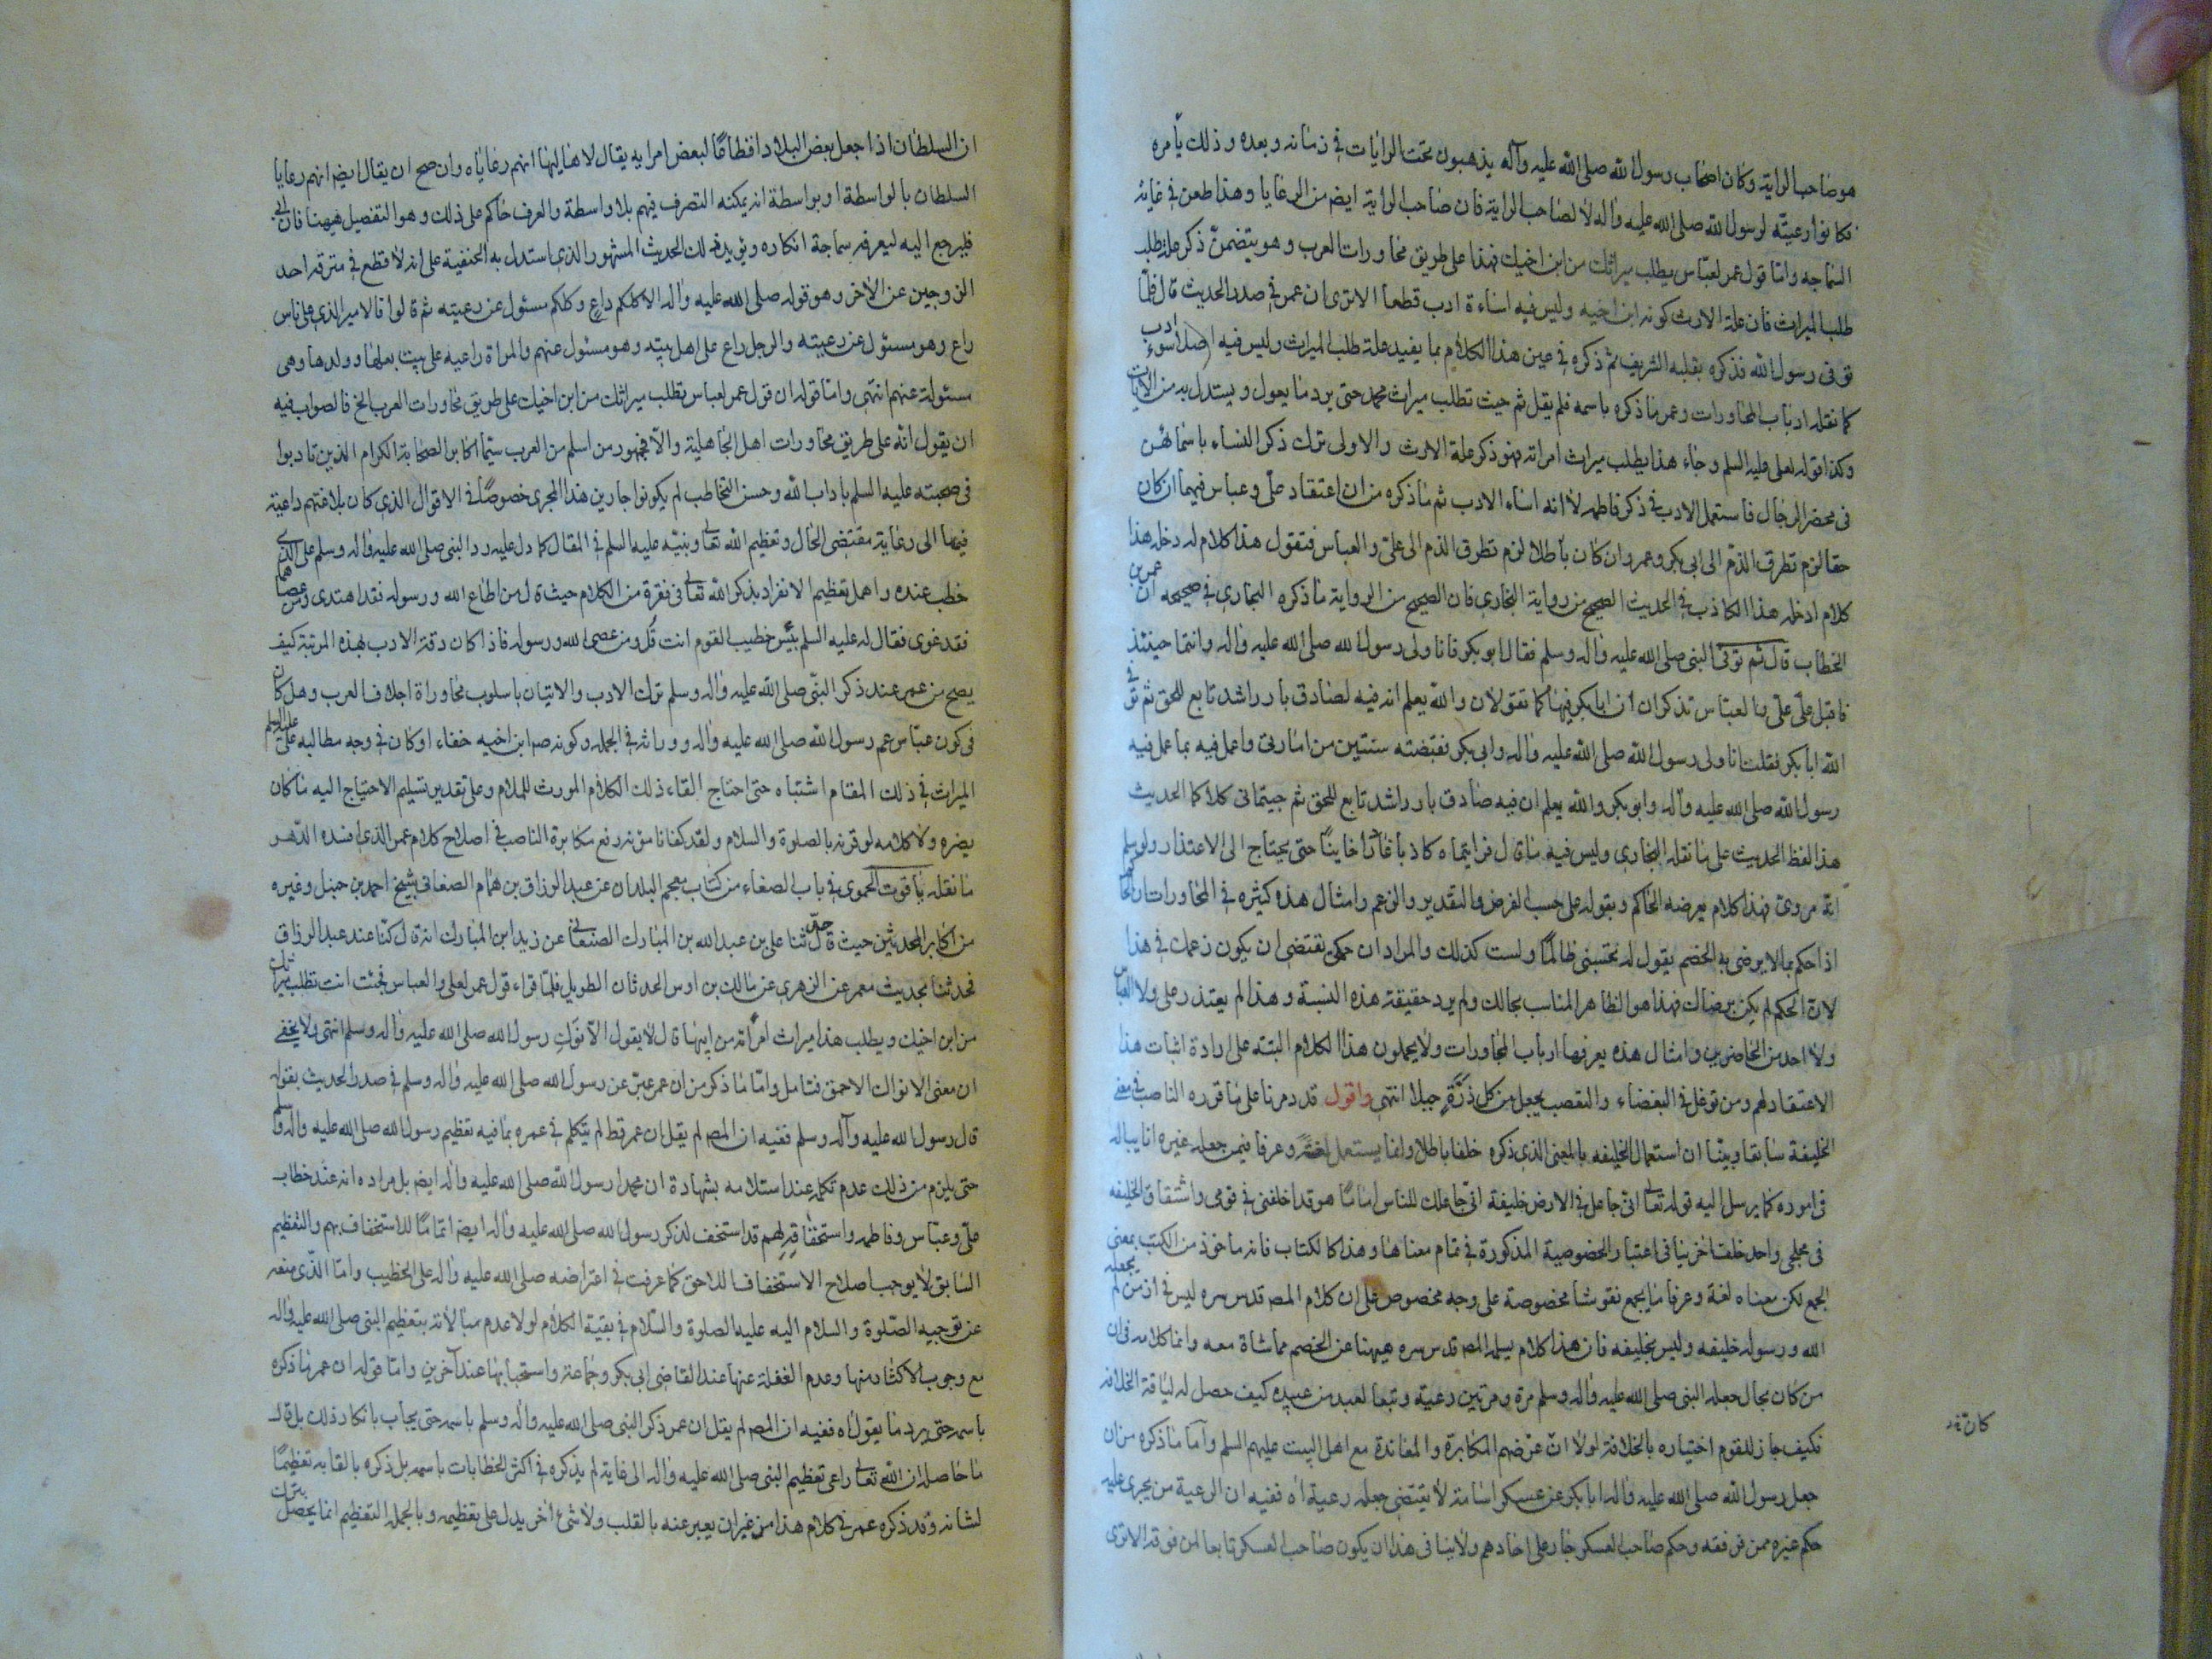 هو صاحب الراية وكان اصحاب رسول الله صلى الله عليه وآله يذهبون تحت الرايات في زمانه وبعده وذلك يأمره
فكانوا رعيته لرسول الله صلى الله عليه وآله لا لصاحب الراية فان صاحب الراية ايضا من الرعايا وهذا طعن في غاية
السماجه واما قول عمر لعباس يطلب ميراثك من ابن اخيك فهذا على طريق محاورات العرب وهو يتضمن ذكر علة طلب
طلب الميراث فان علة الارث كونه ابن اخيه وليس فيه اساءة ادب قطعا الا ترى ان عمر في صدر الحديث قال فلما
توفى رسول الله فذكره بقلبه الشريف ثم ذكره في عين هذا الكلام بما يفيد علة طلب الميراث وليس فيه اصلا سوء ادب
كما نقله ارباب المحاورات وعمر ما ذكره باسمه فلم يقل ثم حيث تطلب ميراث محمد حتى يرد ما يعول ويستدل به من الايات
وكذا قوله لعلى عليه السلم وجاء هذا يطلب ميراث امراته فهو ذكر علة الارث والاولى ترك ذكر النساء باسمائهن
في محضر الرجال فاستعمل الادب في ذكر فاطمه لا انه اساء الادب ثم ما ذكره من ان اعتقاد على وعباس فيهما ان كان
حقا لزم تطرق الذم الى ابى بكر وعمر وان كان باطلا لزم تطرق الذم الى على والعباس فنقول هذا كلام له دخله هذا
كلام ادخله هذا الكاذب في الحديث الصحيح من رواية البخارى فان الصحيح من الرواية ما ذكره البخارى في صحيحه ان عمر بن
الخطاب قال ثم توفى النبى صلى الله عليه وآله وسلم فقال ابو بكر فانا ولى رسول الله صلى الله عليه وآله وانتما حينئذ
فاقبل على على والعباس تذكران ان ابا بكر فيها كما تقولان والله يعلم انه فيه لصادق بار راشد تابع للحق ثم توفى
الله ابا بكر فقلت انا ولى رسول الله صلى الله عليه وآله وابى بكر فقبضته سنتين من امارتى واعمل فيه بما عمل فيه
رسول الله صلى الله عليه وآله وابو بكر والله يعلم ان فيه صادق بار راشد تابع للحق ثم جيتمانى كلاكما الحديث
هذا لفظ الحديث على ما نقله البخارى وليس فيه ما قال فرايتماه كاذبا غادرا خاينا حتى يحتاج الى الاعتذار ولو سلم
انه مروى فهذا كلام يعرضه الحاكم ويقوله على حسب الفرض والتقدير والزعم وامثال هذه كثيره في المحاورات ان الحاكم
اذا حكم بما لا يرضى به الخصم يقول له تحتسبنى ظالما ولست كذلك والمراد ان حكمى يقتضى ان يكون زعمك في هذا
لان الحكم لم يكن برضاك فهذا هو الظاهر المناسب بحالك ولم يرد حقيقة هذه النسبة وهذا لم يعتذر على ولا العباس
ولا احد من الحاضرين وامثال هذه يعرفها ارباب المحاورات ولا يحملون هذا الكلام البتة على ارادة اثبات هذا
الاعتقاد لهم ومن توغل في البغضاء والتعصب يجعل من كل ذرة جبلا انتهى واقول قد دمرنا على ما قرره الناصب في معنى
الخليفة سابقا وبينا ان استعمال الخليفه بالمعنى الذى ذكره خلفا باطل وانما يستعمل لغة وعرفا فيمن جعله غيره نايبا له
في اموره كما يرسل اليه قوله تعالى انى جاعل في الارض خليفة انى جاعلك للناس اماما هو قد اخلفنى في قومى واشتقاق الخليفه
الجمع لكن معناه لغة وعرفا ما يجمع نقوشا مخصوصة على وجه مخصوص على ان كلام المص قدس سره ليس في ان من لم يجعله
الله ورسوله خليفه وليس بخليفه فان هذا كلام يسلمه المص قدس سره هيهنا عن الخصم مماشاة معه وانما كلامه في ان
من كان بحال جعله النبى صلى الله عليه وآله وسلم مرة ومرتين رعية وتبعا لعبد من عبيده كيف حصل له لياقة الخلافه
فكيف جاز للقوم اختياره بالخلافة لولا ان عرضهم المكابرة والمعاندة مع اهل البيت عليهم السلم واما ما ذكره من ان
جعل رسول الله صلى الله عليه وآله ابا بكر من عسكر اسامة لا يقتضى جعله رعية اه ففيه ان الرعية من يجرى عليه
حكم غيره ممن فوقه وحكم صاحب العسكر جار على احادهم ولا ينافى هذا ان يكون صاحب العسكر تابعا لمن فوقه الا ترى
ان السلطان اذا جعل بعض البلاد اقطاعا لبعض امرايه يقال لاهاليها انهم رعاياه وان صح ان يقال ايضا انهم رعايا
السلطان بالواسطة او بواسطة انه يمكنه التصرف فيهم بلا واسطة والعرف حاكم على ذلك وهو التفصيل هيهنا فان
فليرجع اليه ليعرف سماجة انكاره ويؤيد ذلك الحديث المشهور الذى استدل به الحنفية على انه لا قطع في سرقة احد
الزوجين عن الآخر وهو قوله صلى الله عليه وآله الا كلكم راع وكلكم مسئول عن رعيته ثم قالوا فالامير الذى على ناس
راع وهو مسئول عن رعيته والرجل راع على اهل بيته وهو مسئول عنهم والمراة راعيه على بيت بعلها وولدها وهى
مسئولة عنهم انتهى واما قوله ان قول عمر لعباس تطلب ميراثك من ابن اخيك على طريق محاورات العرب الخ فالصواب فيه
ان يقول انه على طريق محاورات اهل الجاهلية والا فجمهور من اسلم من العرب سيما اكابر الصحابة الكرام الذين تادبوا
في صحبته عليه السلم باداب الله وحسن التخاطب لم يكونوا جارين هذا المجرى خصوصا في الاقوال الذى كان بلاغتهم داعية
فيها الى رعاية مقتضى الحال وتعظيم الله تعالى ونبيه عليه السلم في المقال كما دل عليه رد النبى صلى الله عليه وآله وسلم على الذى
خطب عنده واهمل تعظيم الانفراد بذكر الله تعالى في فقرة من الكلام حيث قال من اطاع الله ورسوله فقد اهتدى ومن عصاهما
فقد غوى فقال له عليه السلم بئس خطيب القوم انت قل ومن عصى الله ورسوله فاذا كان دقة الادب بهذه المرتبة كيف
يصح من عمر عند ذكر النبى صلى الله عليه وآله وسلم ترك الادب والاتيان باسلوب محاوراة اجلاف العرب وهل كان
في كون عباس عم رسول الله صلى الله عليه وآله ووراثه في الجمله وكونه ابن اخيه خفاء او كان في وجه مطالبه على عليه السلم
الميراث في ذلك المقام اشتباه حتى احتاج القاء ذلك الكلام المورث للملام وعلى تقدير تسليم الاحتياج اليه ما كان
يضره ولا كلامه لو قرنه بالصلوة والسلام ولقد كفانا مؤنة رفع مكابرة الناصب في اصلاح كلام عمر الذى افسده الدهر
ما نقله ياقوت الحموى في باب الصغاء من كتاب معجم البلدان عن عبد الرزاق بن همام الصغانى شيخ احمد بن حنبل وغيره
من اكابر المحدثين حيث قال حدثنا على بن عبد الله بن المبارك الصنعانى عن زيد ابن المبارك انه قال كنا عند عبد الرزاق
فحدثنا بحديث معمر عن الزهرى عن مالك بن اوس الحدثان الطويل فلما قراء قول عمر لعلى والعباس فجئت انت تطلب ميراثك
من ابن اخيك ويطلب هذا ميراث امراته من ابيها قال لا يقول الانوك رسول الله صلى الله عليه وآله وسلم انتهى ولا يخفى
ان معنى الانوك الاحمق فتامل واما ما ذكر من ان عمر عبر عن رسول الله صلى الله عليه وآله وسلم في صدر الحديث بقوله
قال رسول الله عليه وآله وسلم ففيه ان المص لم يقل ان عمر قط لم يتكلم في عمره بما فيه تعظيم رسول الله صلى الله عليه وآله وسلم
حتى يلزم من ذلك عدم تكلمه عند استلامه بشهادة ان محمدا رسول الله صلى الله عليه وآله ايضا بل مراده انه عند خطاب
على وعباس وفاطمه واستخفافه لهم قد استخف لذكر رسول الله صلى الله عليه وآله ايضا اتماما للاستخفاف بهم والتعظيم
السابق لا يوجب اصلاح الاستخفاف اللاحق كما عرفت في اعتراضه صلى الله عليه وآله على الخطيب واما الذى منعه
عن توجيه الصلوة والسلام اليه عليه الصلوة والسلام في بقية الكلام لولا عدم مبالاته بتعظيم النبى صلى الله عليه وآله
مع وجوب الاكثار منها وعدم الغفلة عنها عند القاضى ابى بكر وجماعة واستحبابها عند آخرين واما قوله ان عمر ما ذكره
باسمه حتى يرد ما يقوله اه ففيه ان المص لم يقل ان عمر ذكر النبى صلى الله عليه وآله وسلم باسمه حتى يجاب بانكار ذلك بل قال
ما حاصله ان الله تعالى راعى تعظيم النبى صلى الله عليه وآله الى غاية لم يذكره في اكثر الخطابات باسمه بل ذكره بالقابه تعظيما
لشانه وقد ذكره عمر في كلام هذا من غير ان يعبر عنه بالقلب ولا شئ آخر يدل على تعظيمه وبالجملة التعظيم انما يحصل بترك